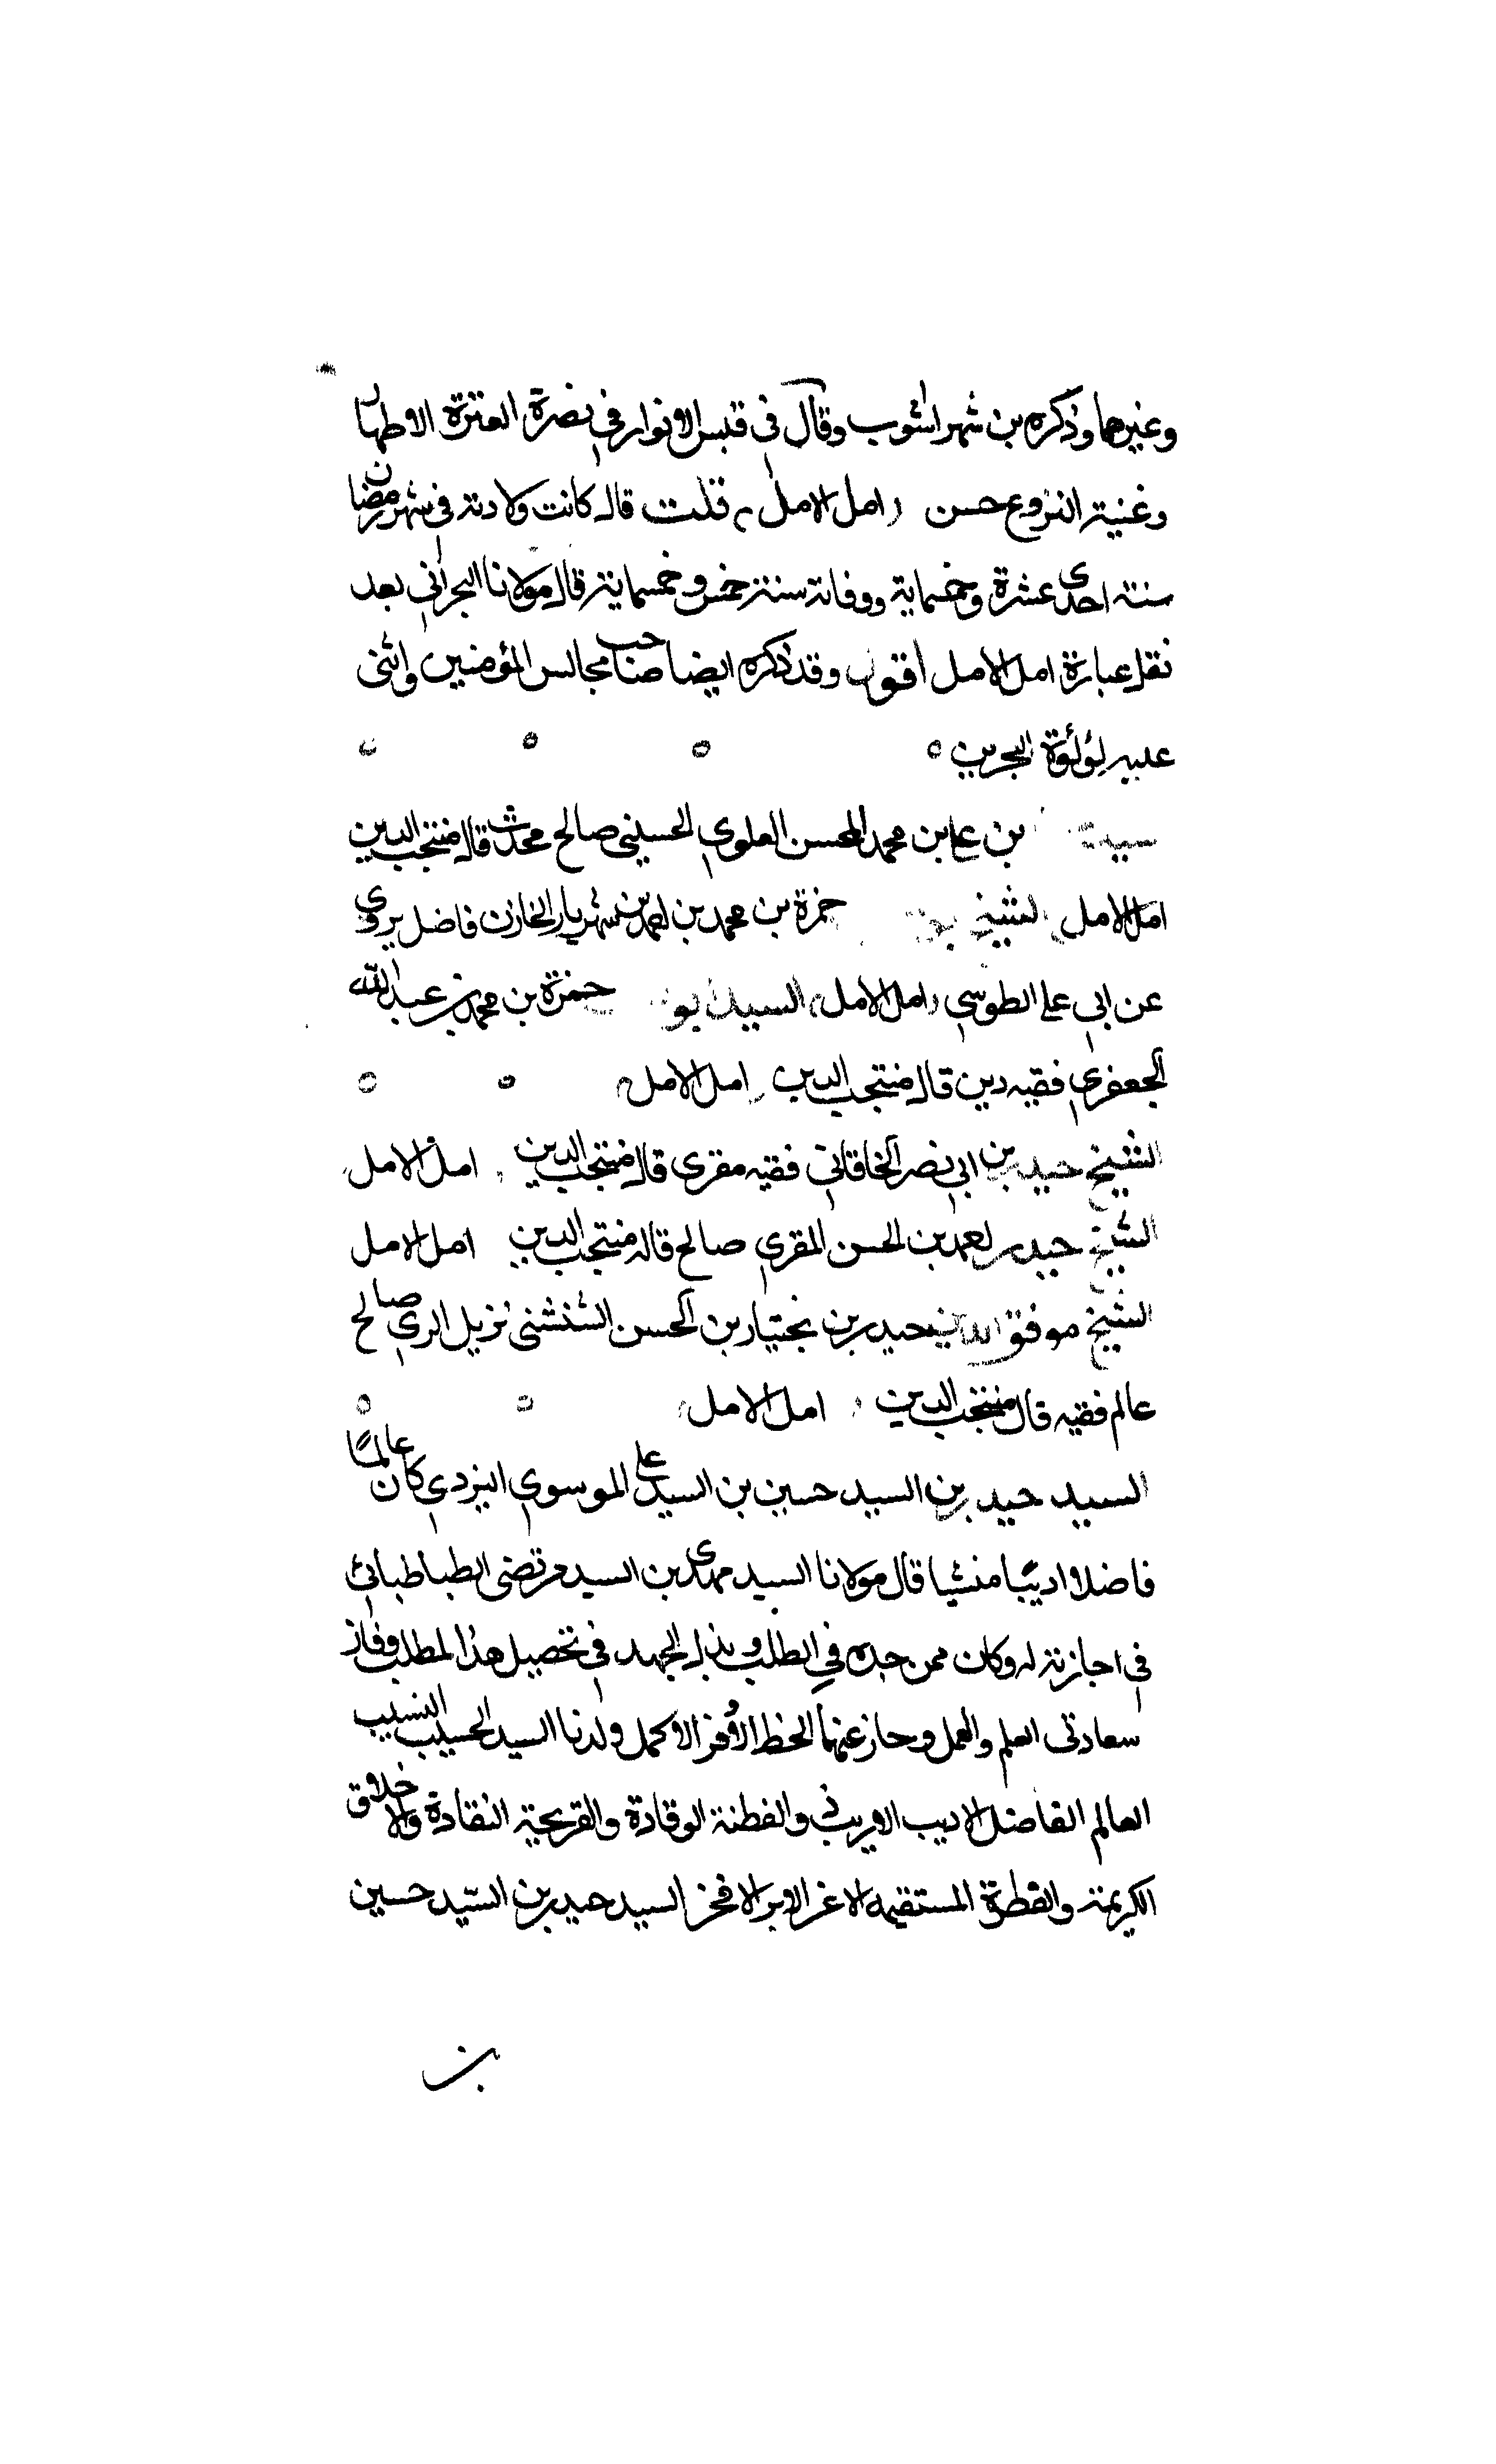 وغيرهما وذكره بن شهراشوب وقال في قبس الانوار في نصرة العترة الاطهار
وغنية النزوع حسن (امل الامل) قلت قال كانت ولادته في شهر رمضان
سنة احدى عشرة وخمسماية ووفاته سنة خمس وخمسماية قال مولانا البحراني بعد
نقل عبارة امل الامل اقول وقد ذكره ايضا صاحب مجالس المؤمنين واثنى
عليه لؤلؤة البحرين
السيد بن علي بن محمد المحسن العلوي الحسيني صالح محدث قاله منتجب الدين
امل الامل الشيخ حمزة بن محمد بن احمد بن شهريار الخازن فاضل يروي
عن ابي علي الطوسي (امل الامل) السيد ابو حمزة بن محمد بن عبد الله
الجعفري فقيه دين قاله منتجب الدين امل الامل
الشيخ حيدر بن ابي نصر الخاقاني فقيه مقرى قاله منتجب الدين امل الامل
الشيخ حيدر بن الحسن المقري صالح قاله منتجب الدين امل الامل
الشيخ موفق الدين حيدر بن بختيار بن الحسن الشنشني نزيل الري صالح
عالم فقيه قال منتجب الدين امل الامل
السيد حيدر بن السيد حسين بن السيد علي الموسوي اليزدي كان عالمًا
فاضلا اديبًا منشيا قال مولانا السيد مهدى بن السيد مرتضى الطباطبائي
في اجازته له وكان ممن جد في الطلب وبذل الجهد في تحصيل هذا المطلب وفاز
سعادتى العلم والعمل وحاز عنهما الحظ الأوفر الاكمل ولدنا السيد الحسيب النسيب
العالم الفاضل الاديب الاريب ذي والفطنة الوقادة والقريحة النقادة والاخلاق
الكريمة والفطرة المستقيمه الاغر الابر الافخر السيد حيدر بن السيّد حسين
بن